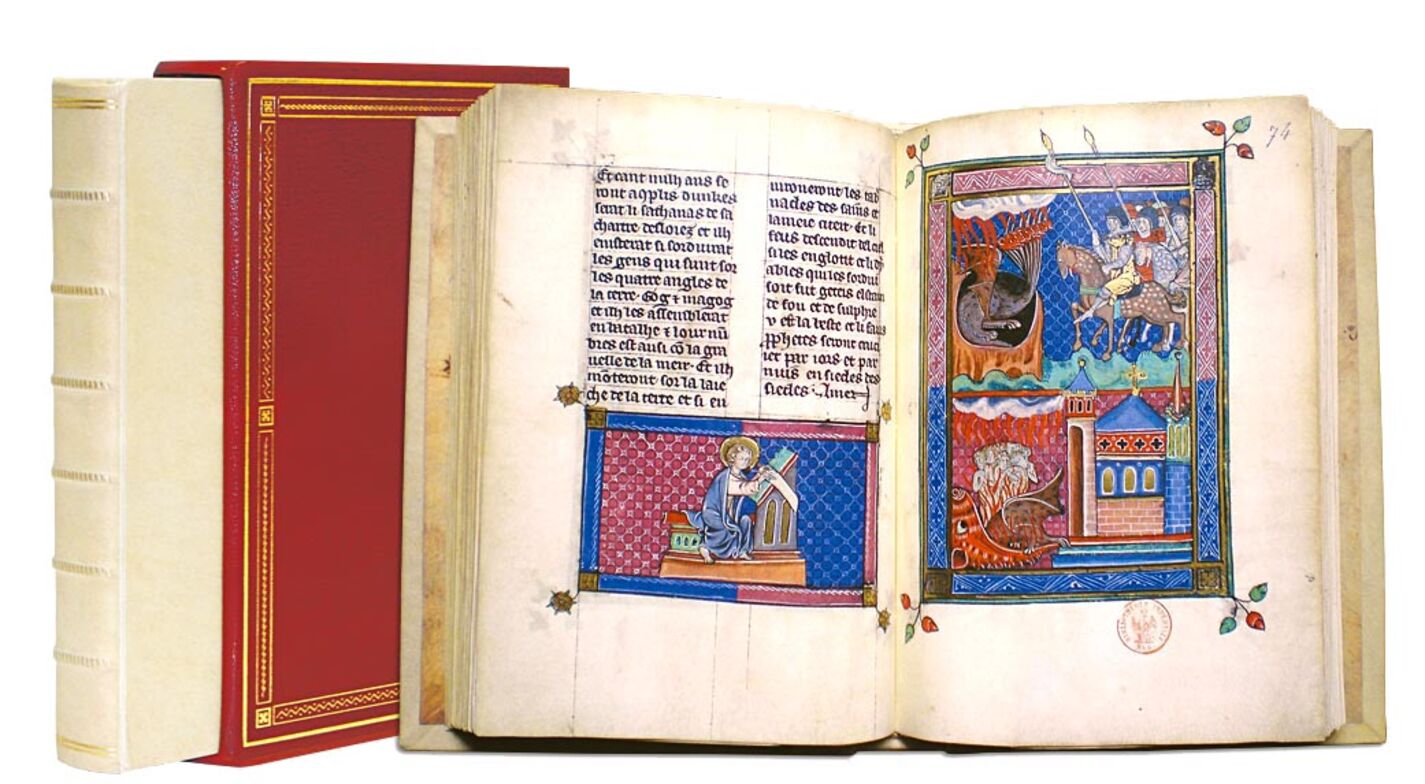 Et cant milh ans se
ront aqplis dunkes
seit li sathanas de sa
chartre desloiez et ilh
enisterat si sorduirat
les gens qui sunt sor
les quatre angles de
la terre. Gog & magog
et ilh les assemblerat
en batalhe & lour nū
bres est ausi cō la gra
uelle de la meir. Et ilh
mōteront sor la laie
che de la terre et si en
uironeront les tab
nacles des sains et
lameie citeit. Et li
feus descendit del ciel
sies englotit et li dy
ables qui les sordui
soit fut getteis el stain
de fou et de sulphre
v est la beste et li faus
pphetes seront cruci
iet par iors et par
nuis en siecles des
siecles. Amen
74